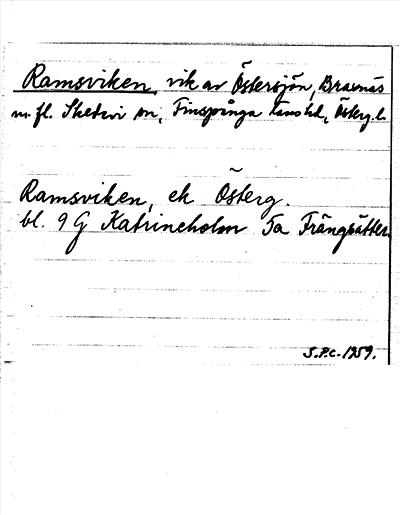 Ramsviken, vik av Östersjön, Brænäs
m.fl. Skedevi sn, Finspånga läns hd, Österg. l.
Ramsviken, ek Österg.
bl. 9 G Katrineholm 5a Frängsätter
S.P.C. 1959.